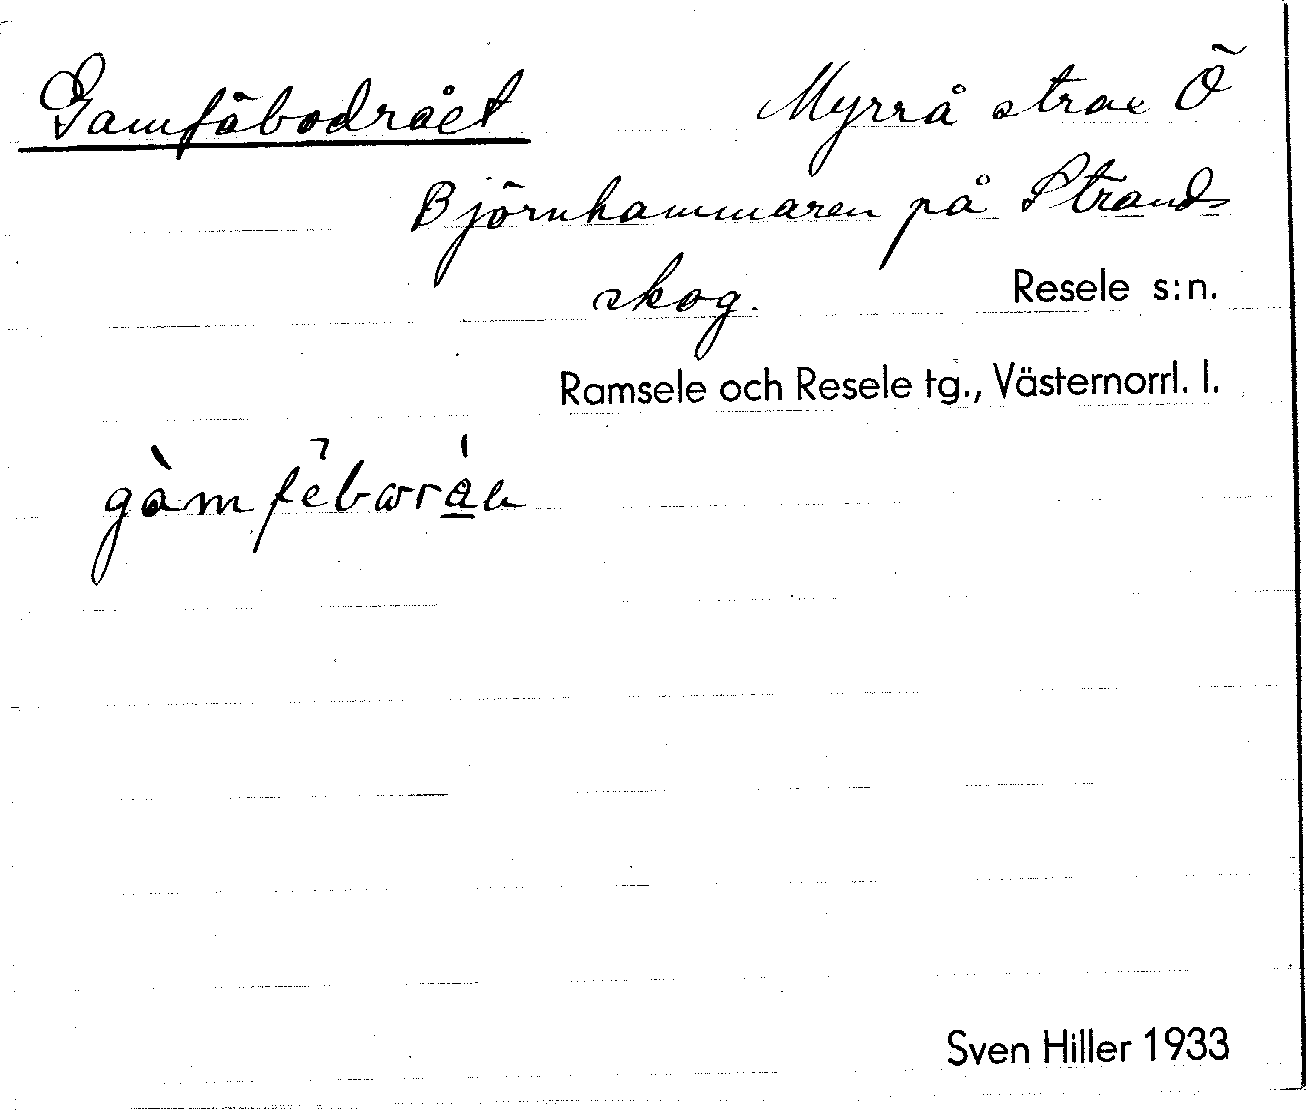 Gamfäbodrået Myrrå strax Ö
Björnhammaren på Strands
skog. Resele s:n.
Ramsele och Resele tg., Västernorrl. l.
Sven Hiller 1933